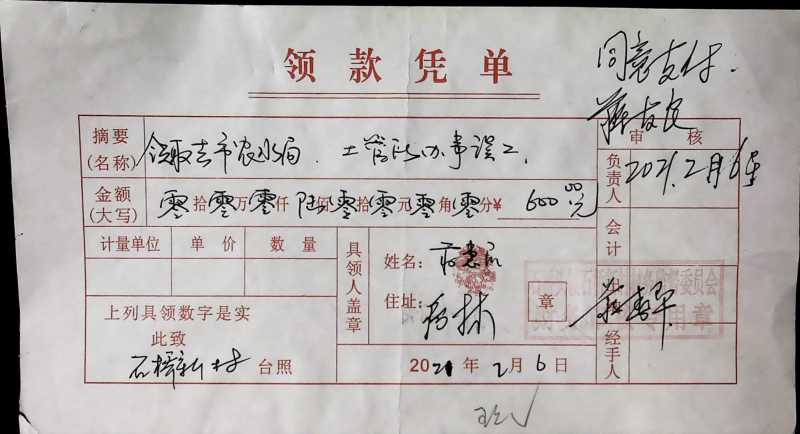 领款凭单
同意支付.
审核
摘要
(名称)
领取去市农水局、土管所办事误工.
负责人
2021.2月6号
金额
(大写)
零拾零万零仟陆佰零拾零元零角零分¥ 600.00元
会计
计量单位 单价 数量
具领人盖章
姓名:
住址:
章
上列具领数字是实
此致
石桥新村 台照
2021年2月6日
经手人